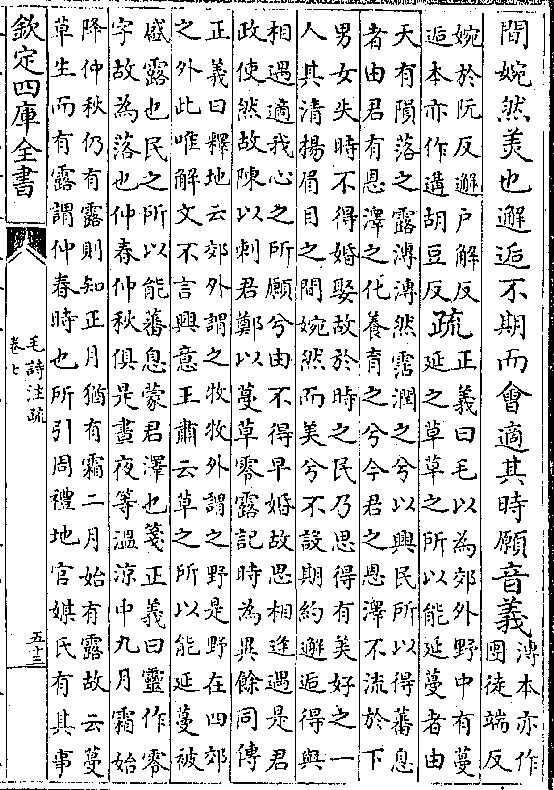 閒婉然美也邂逅不期而會適其時願音義漙本亦作
團徒端反
婉於阮反邂户解反
逅本亦作遘胡豆反疏正義曰毛以為郊外野中有蔓
延之草草之所以能延蔓者由
天有隕落之露漙漙然霑潤之兮以興民所以得蕃息
者由君有恩澤之化養育之兮今君之恩澤不流於下
男女失時不得婚娶故於時之民乃思得有美好之一
人其清揚眉目之間婉然而美兮不設期約邂逅得與
相遇適我心之所願兮由不得早婚故思相逢遇是君
政使然故陳以刺君鄭以蔓草零露記時為異餘同傳
正義曰釋地云郊外謂之牧牧外謂之野是野在四郊
之外此唯解文不言興意王肅云草之所以能延蔓被
盛露也民之所以能蕃息蒙君澤也箋正義曰靈作零
字故為落也仲春仲秋俱是晝夜等温涼中九月霜始
降仲秋仍有露則知正月猶有霜二月始有露故云蔓
草生而有露謂仲春時也所引周禮地官媒氏有其事
欽定四庫全書
毛詩注疏
卷七
五十三